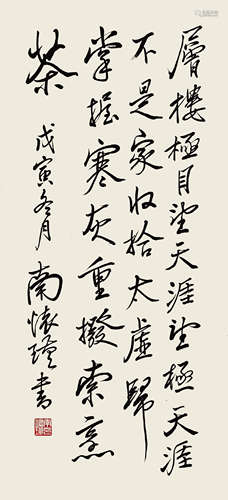 層樓極目望天涯望極天涯
不是家收拾太虛歸
掌握寒灰重撥索烹
茶
戊寅冬月 南懷瑾書